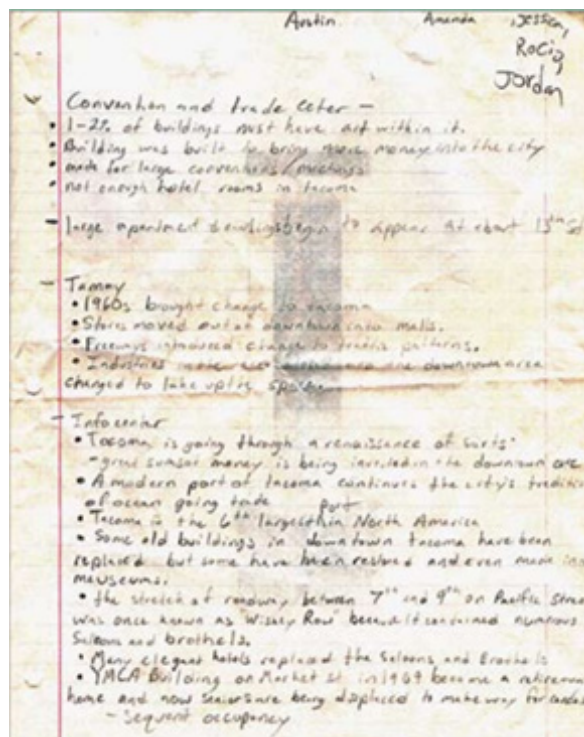 Austin Amanda Jessen,
Rocio,
Jordan
Convention and trade ceter -
• 1-2% of buildings must have art within it.
• Building was built to bring more money into the city
• made for large conventions/meetings
• not enough hotel rooms in tacoma
- large apartment begin to appear at about 15th St
- Tammy
• 1960s bought change to tacoma
• Stores moved out of downtown into malls.
• Freeways introduced change to patterns.
• Industries the downtown area
changed to take up the space.
- Info center
• Tacoma is going through a renaissance of sorts.
- great money is being invested in the downtown core
• A modern port of tacoma continues the city's tradition
of ocean going trade
port
• Tacoma is the 6th largest in North America
• Some old buildings in downtown tacoma have been
replaced but some have been restored and even made into
meuseums.
• the stretch of roadway between 7th and 9th on Pacific Street
was once known as "Wiskey Row" because it contained numerous
Saloons and brothels.
• Many elegant hotels replaced the Saloons and Brothels
• YMCA Building on Market st in 1969 became a retirement
home and now seniors are being displaced to make way for condos
- Sequent occupancy